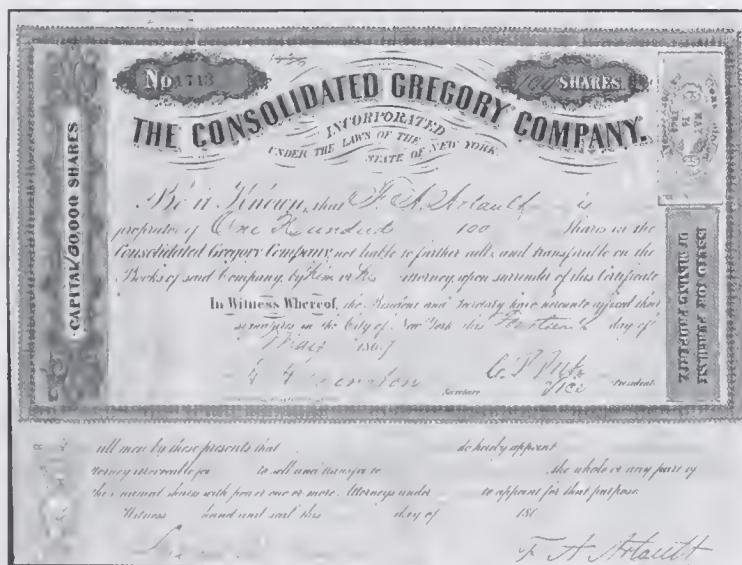 No 1713
100 SHARES.
THE CONSOLIDATED GREGORY COMPANY.
INCORPORATED
UNDER THE LAWS OF THE
STATE OF NEW YORK.
CAPITAL, 50,000 SHARES
Be it Known, that F. A. Artault is
proprietor of One Hundred 100 Shares in the
Consolidated Gregory Company, not liable to further calls, and transferable on the
Books of said Company, by him or his attorney, upon surrender of this Certificate
In Witness Whereof, the President and Secretary have hereunto affixed their
signatures in the City of New York this day of
186
Secretary
Vice President
ISSUED FOR PURCHASE
OF MINING PROPERTY
all men by these presents that do hereby appoint
to sell and transfer to the whole or any part of
shares with power one or more Attorneys under to appoint for that purpose.
Witness hand and seal this day of 186
F A Artault